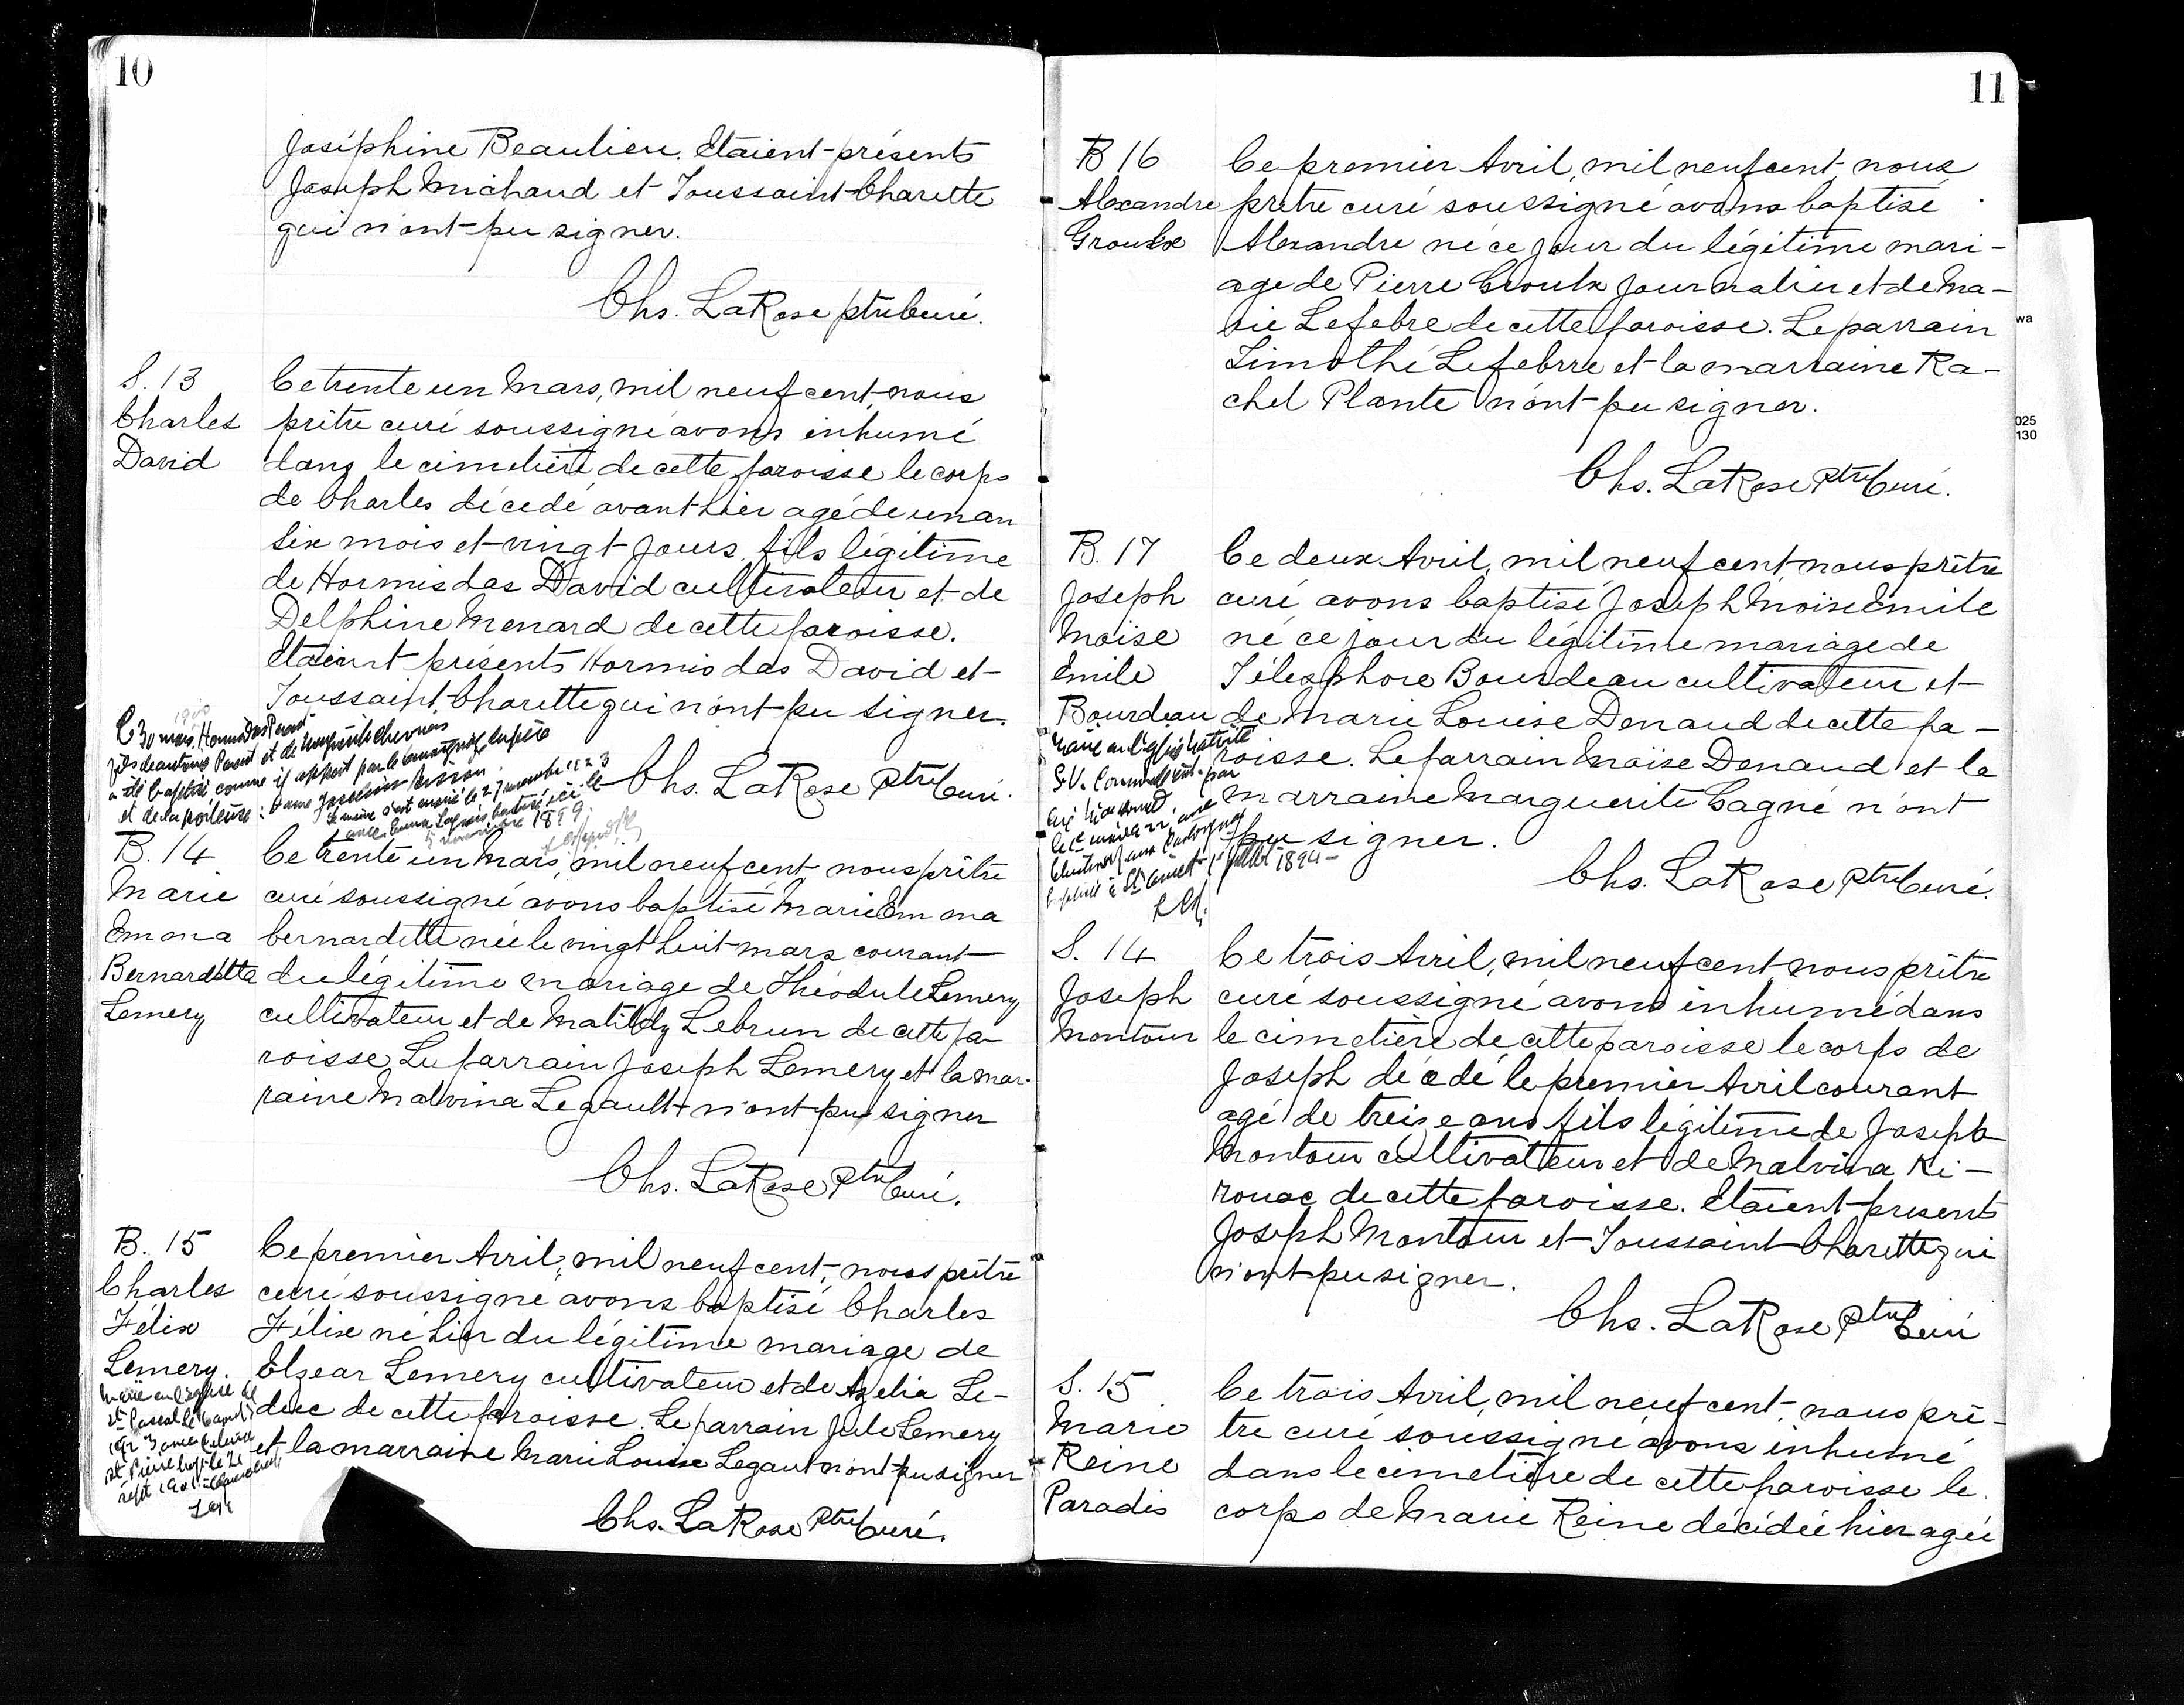 10
Joséphine Beaulieu. Etaient présents
Joseph Michaud et Toussaint Charette
qui n'ont pu signer.
Chs. LaRose ptre Curé.
S. 13
Charles
David
Ce trente un Mars, mil neuf cent, nous
prêtre curé soussigné avons inhumé
dans le cimetière de cette paroisse le corps
de Charles décédé avant hier agé de un an
six mois et vingt jours, fils légitime
de Hormisdas David cultivateur et de
Delphine Menard de cette paroisse.
Etaient présents Hormisdas David et
Toussaint Charette qui n'ont pu signer.
Chs. LaRose Ptre Curé.
1900
30 mars Hormisdas
fils de et de
a été baptisé comme il appert par le témoignage du père
et de la porteuse: Dame
le 27 novembre 1923
avec Emma ici le
5 novembre 1899
B. 14
Marie
Emma
Bernardette
Lemery
Ce trente un Mars, mil neuf cent nous prêtre
curé soussigné avons baptisé Marie Emma
bernardette née le vingt huit mars courant
du légitime mariage de Théodule Lemery
cultivateur et de Matildy Lebrun de cette pa-
roisse. Le parrain Joseph Lemery et la mar-
raine Malvina Legault n'ont pu signer
Chs. LaRose Ptre Curé.
B. 15
Charles
Félix
Lemery.
Marié en l'église de
St Pascal
1923 avec
St Pierre le 21
sept 1901
Ce premier Avril, mil neuf cent, nous prêtre
curé soussigné avons baptisé Charles
Félix né hier du légitime mariage de
Elzear Lemery cultivateur et de Azelia Le-
duc de cette paroisse. Le parrain Jule Lemery
et la marraine Marie Louise Legaut n'ont pu signer
Chs. LaRose Ptre Curé.
11
B 16
Alexandre
Groulx
Ce premier Avril, mil neuf cent, nous
prêtre curé soussigné avons baptisé
Alexandre né ce jour du légitime mari-
age de Pierre Groulx journalier et de Ma-
rie Lefebre de cette paroisse. Le parrain
Timothé Lefebrre et la marraine Ra-
chel Plante n'ont pu signer.
Chs. LaRose Ptre Curé.
wa
025
130
B. 17
Joseph
Moïse
Emile
Bourdeau
Marié en l'église Nativité
B.V. Cornwall Ont. par
1er juillet 1894
Ce deux Avril, mil neuf cent, nous prêtre
curé avons baptisé Joseph Moïse Emile
né ce jour du légitime mariage de
Télesphore Bourdeau cultivateur et
de Marie Louise Denaud de cette pa-
roisse. Le parrain Moïse Denaud et la
marraine Marguerite Gagné n'ont
pu signer.
Chs. LaRose Ptre Curé.
S. 14
Joseph
Montour
Ce trois Avril, mil neuf cent nous prêtre
curé soussigné avons inhumé dans
le cimetière de cette paroisse le corps de
Joseph décédé le premier Avril courant
agé de treize ans fils légitime de Joseph
Montour cultivateur et de Malvina Ki-
rouac de cette paroisse. Etaient présents
Joseph Montour et Toussaint Charette qui
n'ont pu signer.
Chs. LaRose Ptre Curé
S. 15
Marie
Reine
Paradis
Ce trois Avril, mil neuf cent, nous prê-
tre curé soussigné avons inhumé
dans le cimetière de cette paroisse le
corps de Marie Reine décédée hier agée